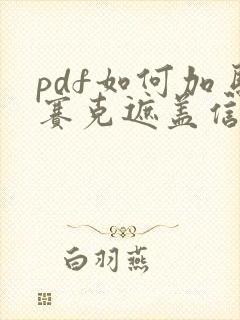 pdf如何加
赛克遮盖信
白羽燕